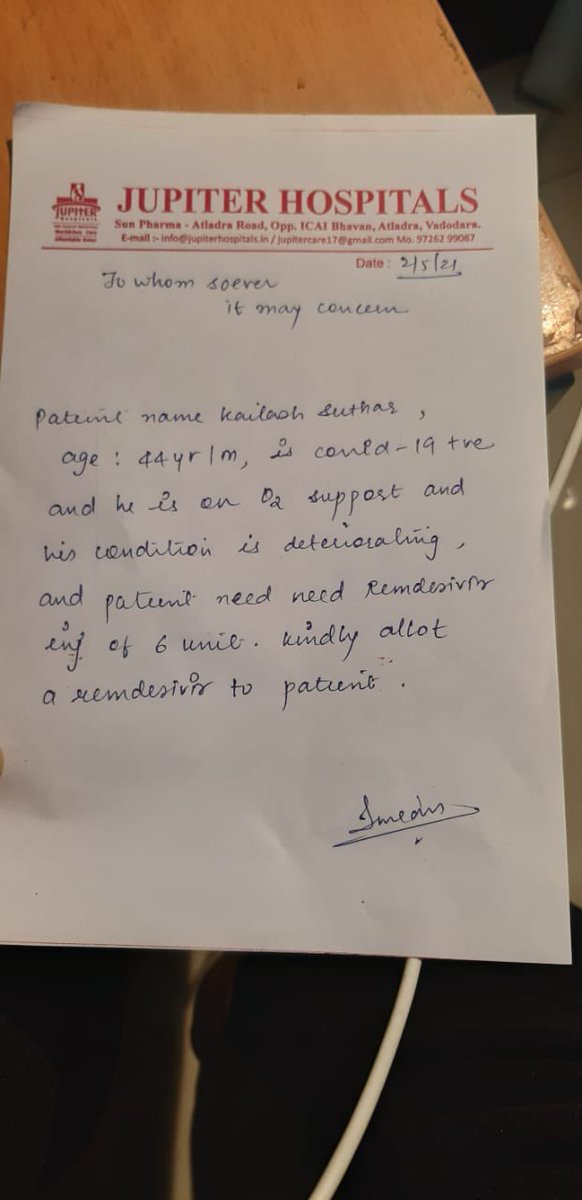 JUPITER HOSPITALS
JUPITER
Hospitals
Sun Pharma - Atladra Road, Opp. ICAI Bhavan, Atladra, Vadodara.
E-mail :- info@jupiterhospitals.in / jupitercare17@gmail.com Mo. 97262 99087
Date : 2/5/21
To whom soever
it may concern
Patient name Kailash Suthar ,
age : 44yr/m, is covid-19 +ve
and he is on O2 support and
his condition is deteriorating ,
and patient need need Remdesivir
inj of 6 unit. kindly allot
a remdesivir to patient .